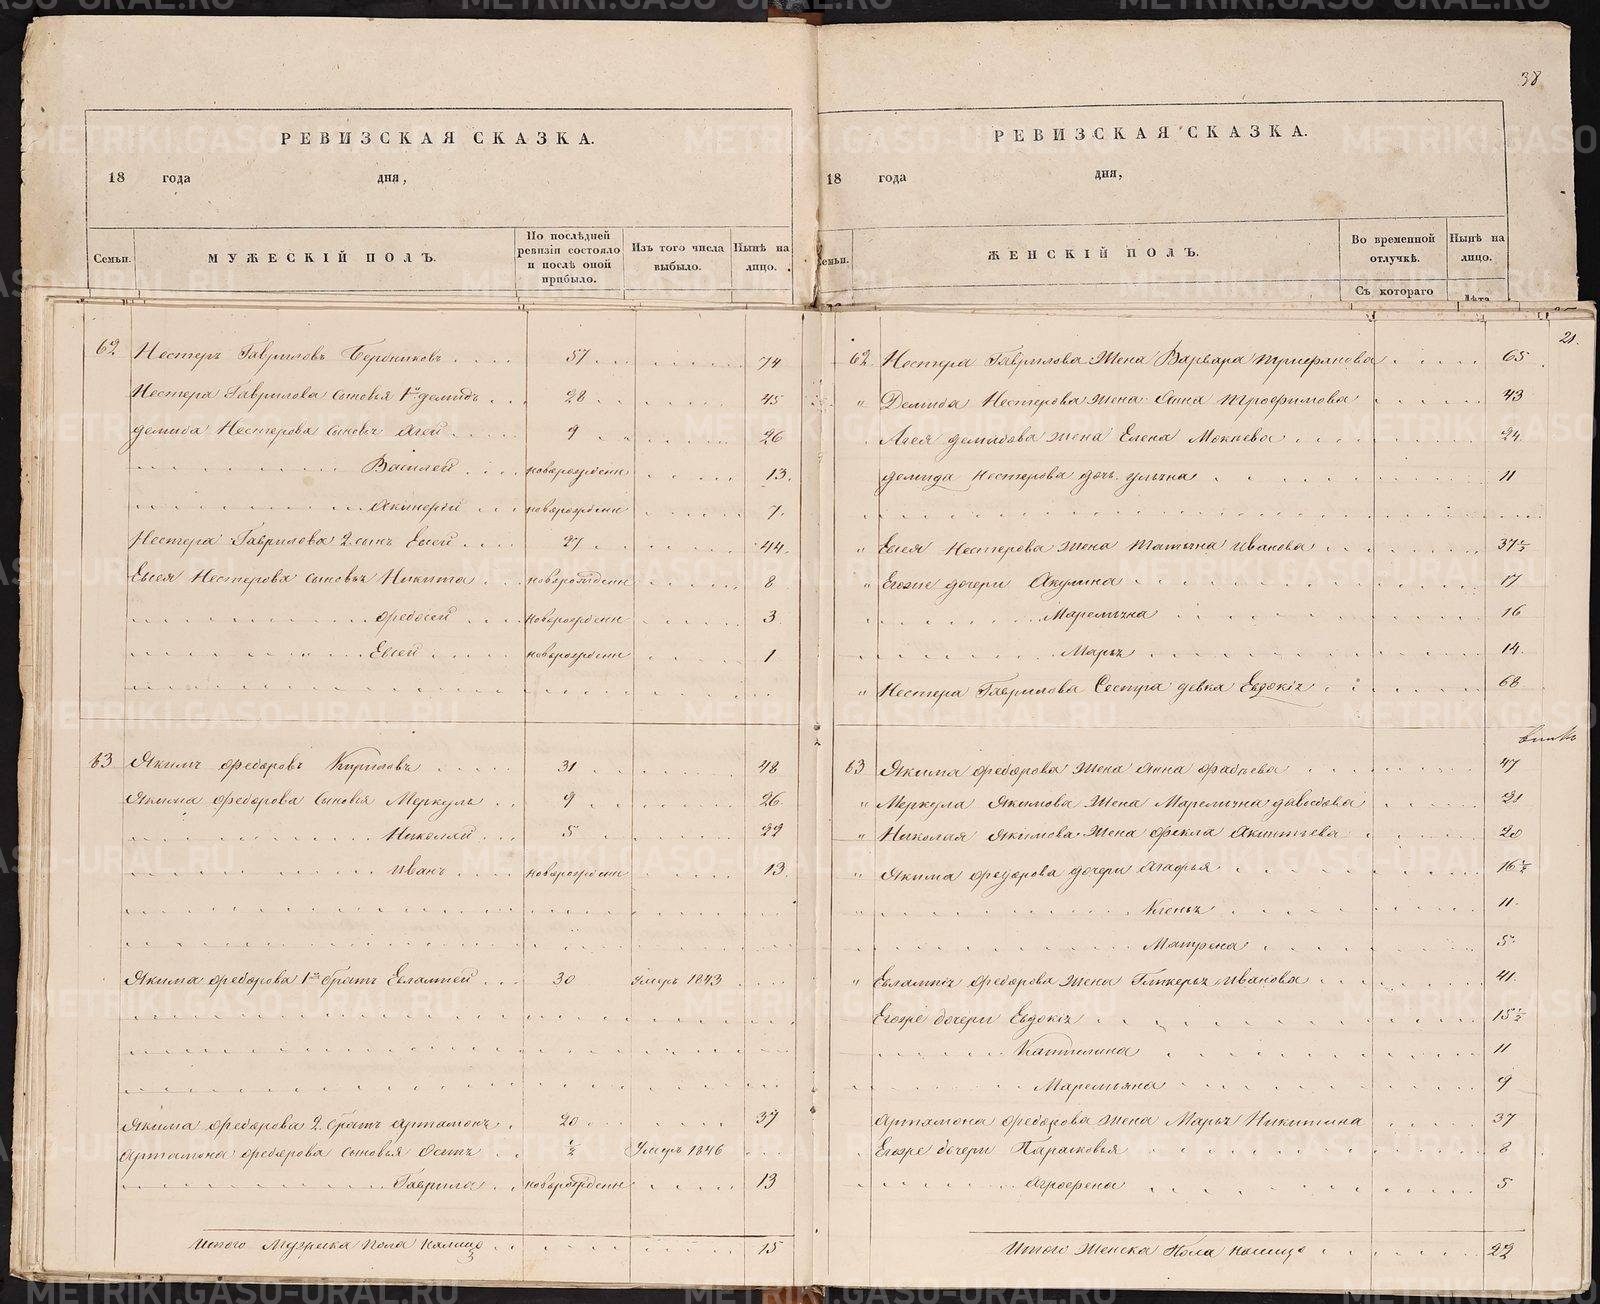 38
РЕВИЗСКАЯ СКАЗКА.
18 года дня,
Семьи. МУЖЕСКІЙ ПОЛЪ. По послѣдней ревизіи состояло и послѣ оной прибыло. Изъ того числа выбыло. Нынѣ на лицо.
62 Нестеръ Гавриловъ 57 74
Нестера Гаврилова сыновья 1й демидъ 28 45
демида Нестерова сыновъ Агей 9 26
Василей новорожденн 13.
новорожденн 7.
Нестера Гаврилова 2. сынъ Евсей 27 44.
Евсея Нестерова сыновья Никита новорожденн 8
Федосей новорожденн 3
Евсей новорожденн 1
63 Якимъ Федоровъ Кириловъ 31 48
Якима Федорова сыновья Меркулъ 9 26
Николай 5 22
Иванъ новорожденн 13.
Якима Федорова 1й братъ Евлампей 30 Умеръ 1843
Якима Федорова 2. братъ Артамонъ 20 37
Артамона Федорова сыновья Осипъ ½ Умеръ 1846
Гаврила новорожденн 13
Итого Мужеска пола налицо 15
РЕВИЗСКАЯ СКАЗКА.
18 года дня,
Семьи. ЖЕНСКІЙ ПОЛЪ. Во временной отлучкѣ. Нынѣ на лицо.
Съ котораго Лѣта
21.
62 Нестера Гаврилова жена Варвара 65
" Демида Нестерова жена Анна Трофимова 43
Агея демидова жена Елена Мокиева 24
демида Нестерова дочь улияна 11
" Евсея Нестерова жена Татьяна Иванова 37½
" Егоже дочери Акулина 17
Маремьяна 16
Марья 14.
" Нестера Гаврилова Сестра девка Евдокія 68
63 Якима Федорова жена Анна 47
" Меркула Якимова жена Маремьяна давыдова 21
" Николая Якимова жена Фекла 20
" Якима Федорова дочери Агафья 16½
11.
Матрена 5.
" Евлампія Федорова жена Гликерья Иванова 41.
Егоже дочери Евдокія 15½
11
Маремьяна 9
Артамона Федорова жена Марья Никитина 37
Егоже дочери Парасковья 8
Агрофена 5
Итого женска пола налицо 22
METRIKI.GASO-URAL.RU